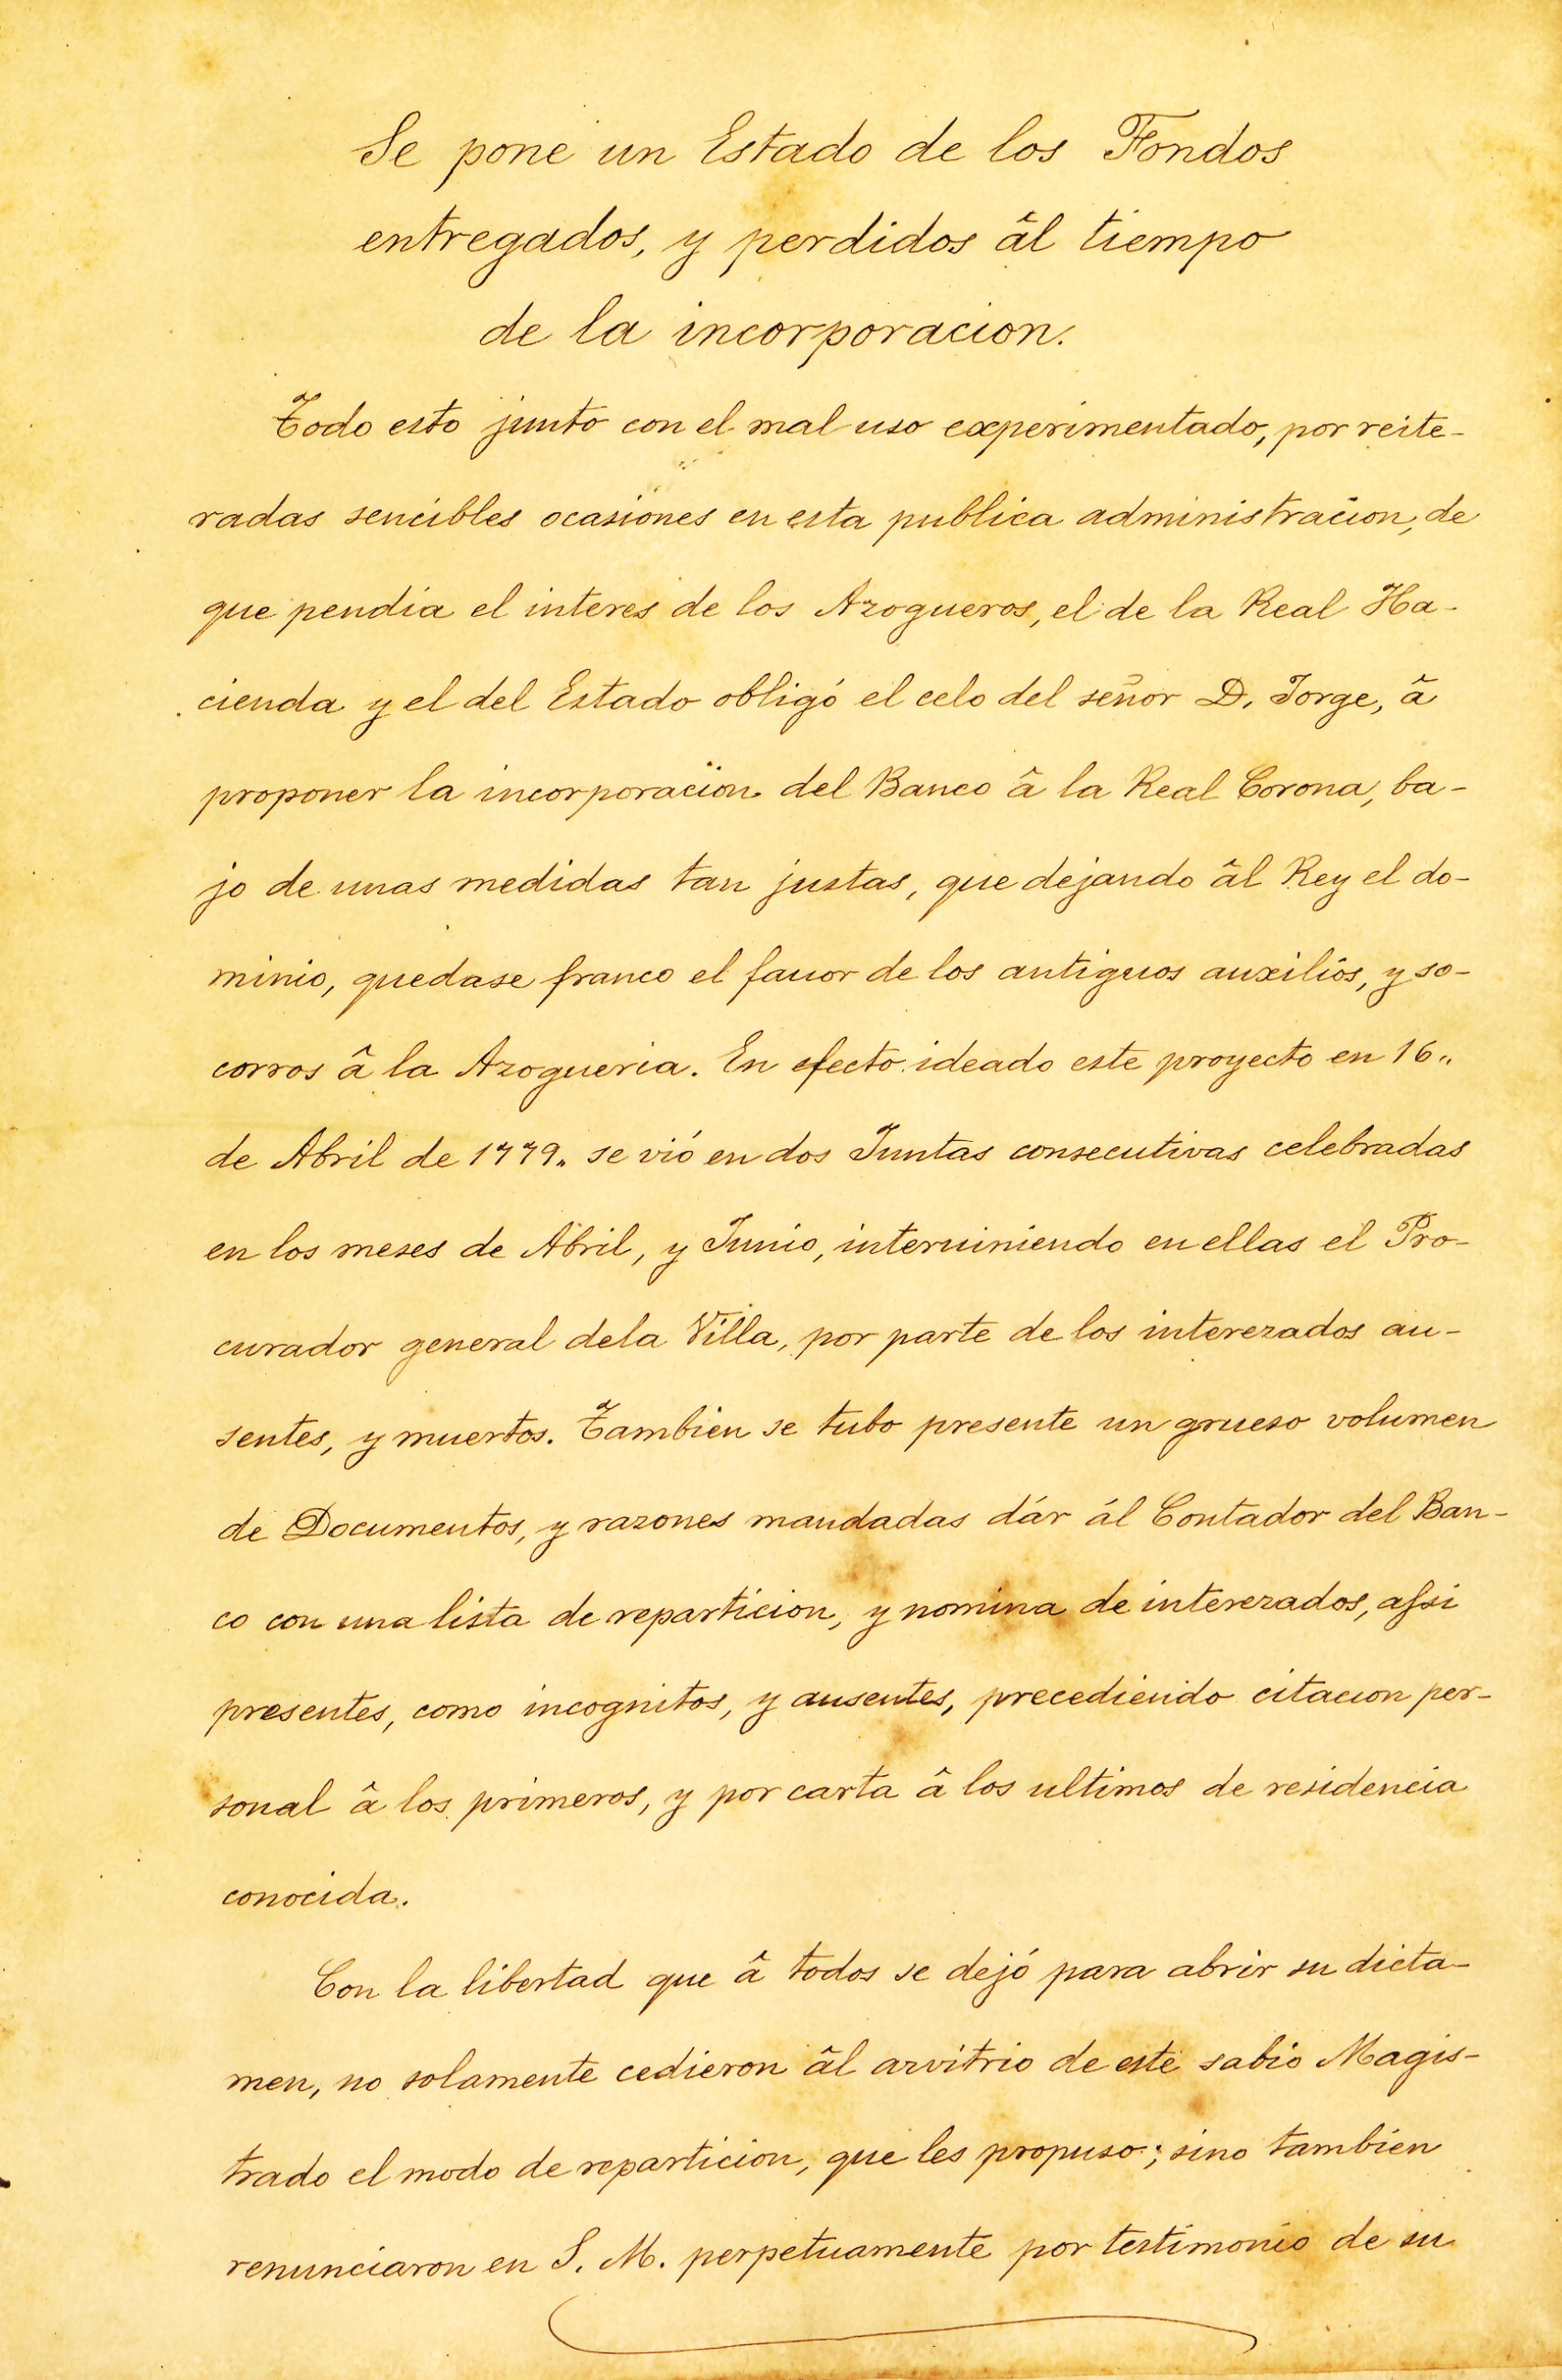 Se pone un Estado de los Fondos
entregados, y perdidos âl tiempo
de la incorporacion.
Todo esto junto con el mal uso experimentado, por reite-
radas sencibles ocasiones en esta publica administracion, de
que pendia el interes de los Azogueros, el de la Real Ha-
cienda y el del Estado obligó el celo del señor D. Jorge, â
proponer la incorporacion del Banco â la Real Corona, ba-
jo de unas medidas tan justas, que dejando âl Rey el do-
minio, quedase franco el fauor de los antiguos auxilios, y so-
corros â la Azogueria. En efecto ideado este proyecto en 16„
de Abril de 1779„ se vió en dos Juntas consecutivas celebradas
en los meses de Abril, y Junio, interuiniendo en ellas el Pro-
curador general dela Villa, por parte de los interezados au-
sentes, y muertos. Tambien se tubo presente un grueso volumen
de Documentos, y razones mandadas dár ál Contador del Ban-
co con una lista de reparticion, y nomina de interezados, assi
presentes, como incognitos, y ausentes, precediendo citacion per-
sonal â los primeros, y por carta â los ultimos de residencia
conocida.
Con la libertad que â todos se dejó para abrir su dicta-
men, no solamente cedieron âl arvitrio de este sabio Magis-
trado el modo de reparticion, que les propuso; sino tambien
renunciaron en S. M. perpetuamente por testimonio de su